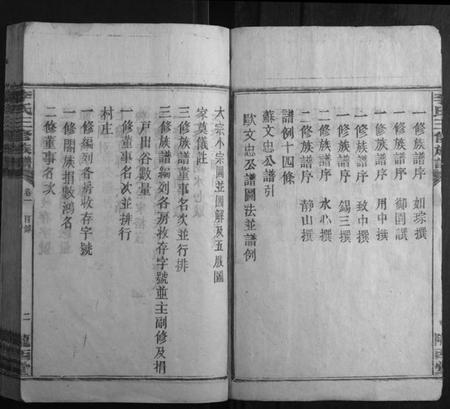 一修族譜序 如琮撰
一修族譜序
一修族譜序 用中撰
一修族譜序 致中撰
一修族譜序 錫三撰
二修族譜序 水心撰
二修族譜序 靜山撰
譜例十四條
蘇文忠公譜引
歐文忠公譜圖法並譜例
大宗小宗圖並圖解及五服圖
家奠儀註
三修族譜董事名次並行排
三修族譜編列各房收存字號並主副修及捐
戶出谷數量
一修董事名次並排行
村庄
一修編列各房收存字號
一修闔族捐數鴻名
二修董事名次
李氏三修族譜
卷一
目錄
二
隴西堂